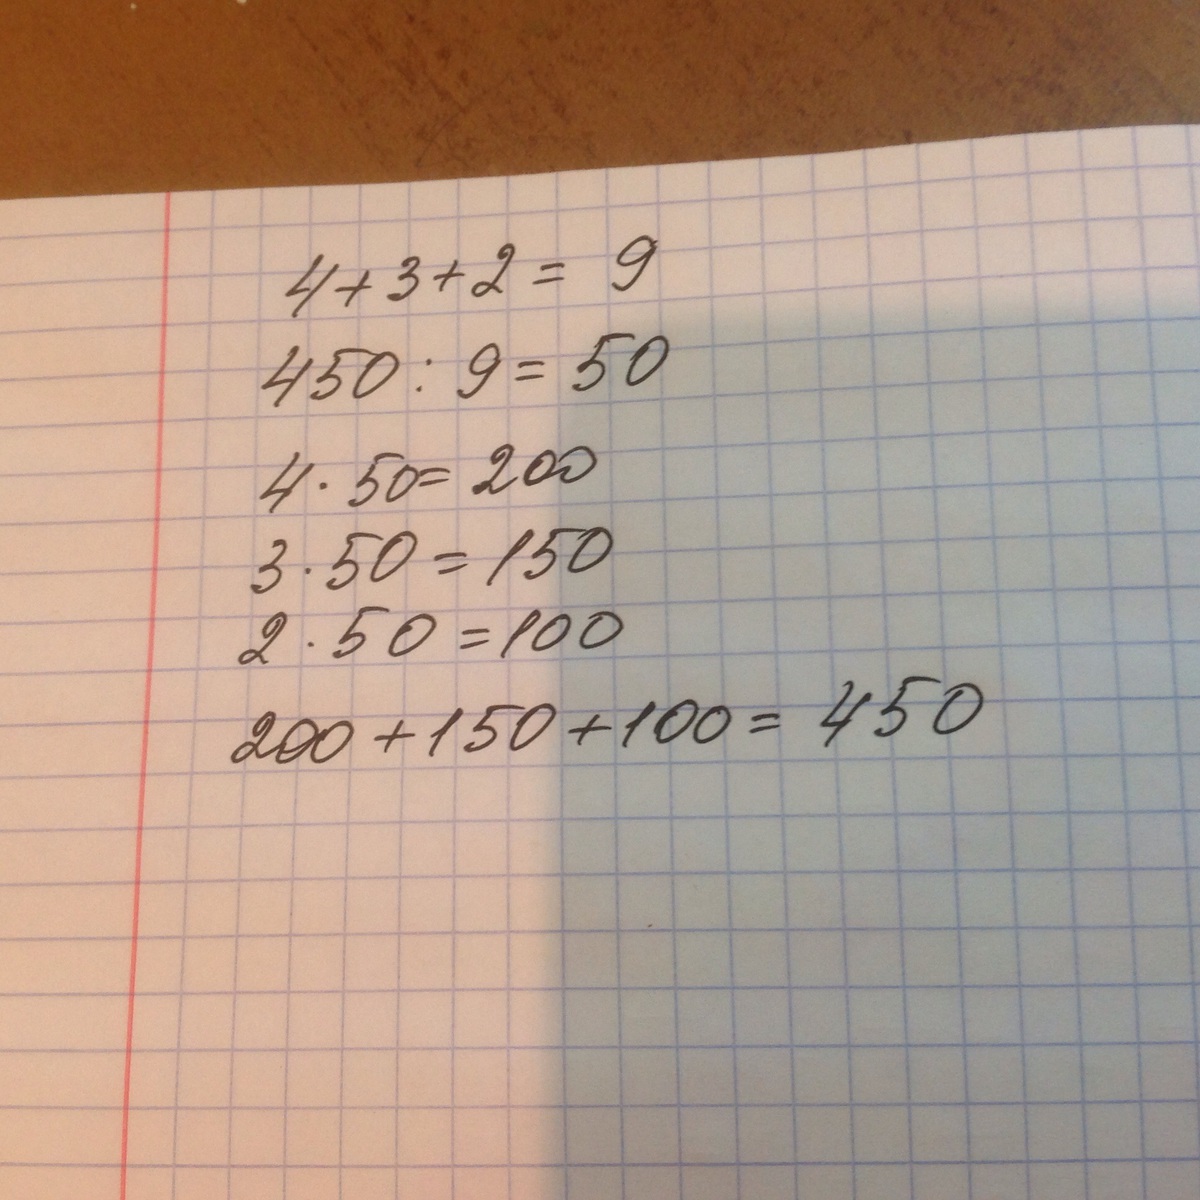 4+3+2= 9
450 : 9 = 50
4 · 50= 200
3 · 50 = 150
2 · 50 =100
200 +150 +100= 450